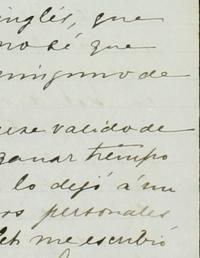 inglés, que
no sé que
ninguno de
valido de
ganar tiempo
lo dejó á un
personales
me escribió